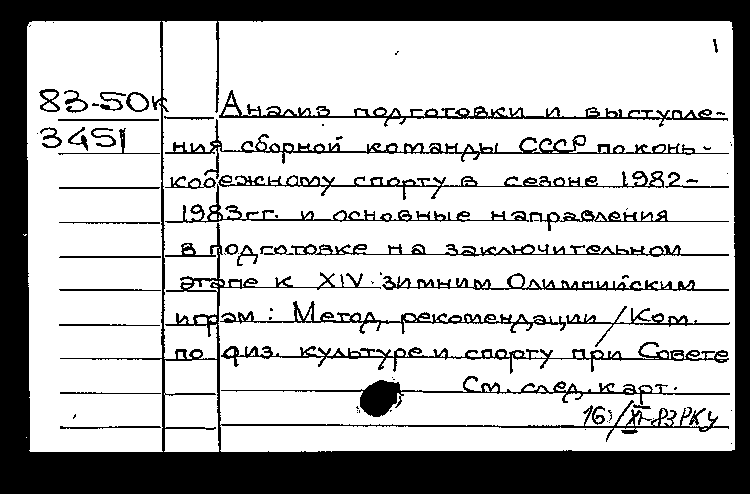 1
83-50к Анализ подготовки и выступле-
3451 ния сборной команды СССР по конь-
кобежному спорту в сезоне 1982-
1983гг. и основные направления
в подготовке на заключительном
этапе к XIV зимним Олимпийским
играм: Метод. рекомендации / Ком.
по физ. культуре и спорту при Совете
См. след. карт.
16/XI-83 РКУ